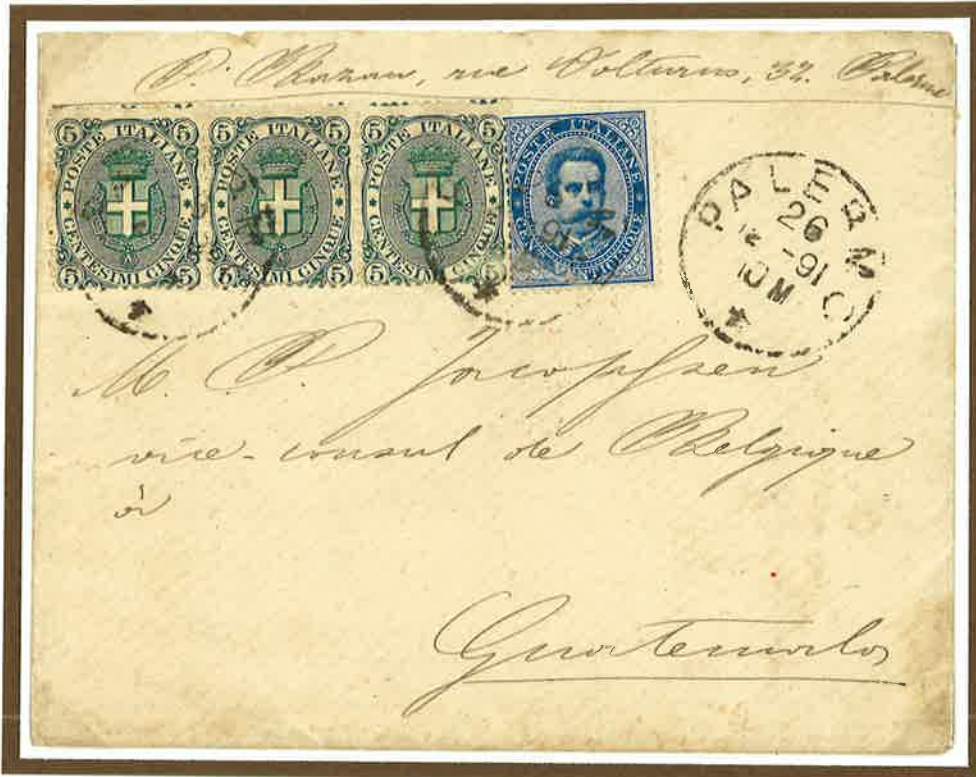 rue Volturno, 32. Palerme
5 POSTE ITALIANE 5
5 CENTESIMI CINQUE 5
5 POSTE ITALIANE 5
5 CENTESIMI CINQUE 5
5 POSTE ITALIANE 5
5 CENTESIMI CINQUE 5
POSTE ITALIANE
PALERMO
26
12 -91
10 M
M. P.
vice-consul de Belgique
à
Guatemala